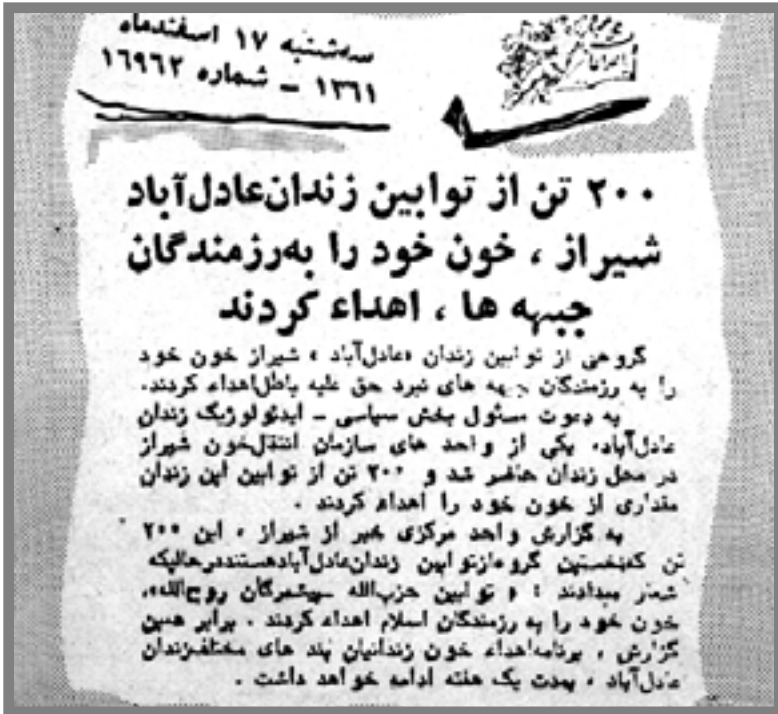 سه‌شنبه ۱۷ اسفندماه
۱۳۶۱ ـ شماره ۱۶۹۶۲
۲۰۰ تن از توابین زندان‌عادل‌آباد
شیراز ، خون خود را به‌رزمندگان
جبهه ها ، اهداء کردند
گروهی از توابین زندان «عادل‌آباد» شیراز خون خود
را به رزمندگان جبهه های نبرد حق علیه باطل‌اهداء کردند.
به دعوت مسئول بخش سیاسی ـ ایدئولوژیک زندان
عادل‌آباد، یکی از واحد های سازمان انتقال‌خون شیراز
در محل زندان حاضر شد و ۲۰۰ تن از توابین این زندان
مقداری از خون خود را اهداء کردند .
به گزارش واحد مرکزی خبر از شیراز ، این ۲۰۰
تن که‌نخستین گروه‌ازتوابین زندان‌عادل‌آبادهستنددرحالیکه
شعار میدادند : « توابین حزب‌الله پیشمرگان روح‌الله»،
خون خود را به رزمندگان اسلام اهداء کردند . برابر همین
گزارش ، برنامه‌اهداء خون زندانیان بند های مختلف‌زندان
عادل‌آباد ، بمدت یک هفته ادامه خواهد داشت .